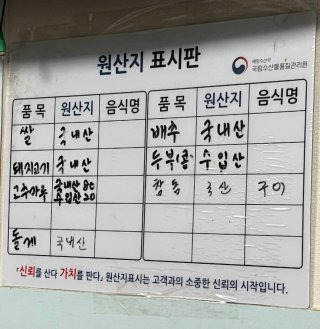 원산지 표시판
해양수산부
국립수산물품질관리원
품 목 원산지 음식명 품 목 원산지 음식명
쌀 국내산 배추 국내산
돼지고기 국내산 두부(콩) 수입산
고추가루 국내산 80 수입산 20 참돔 국산 구이
돌게 국내산
「신뢰를 산다 가치를 판다」 원산지표시는 고객과의 소중한 신뢰의 시작입니다.